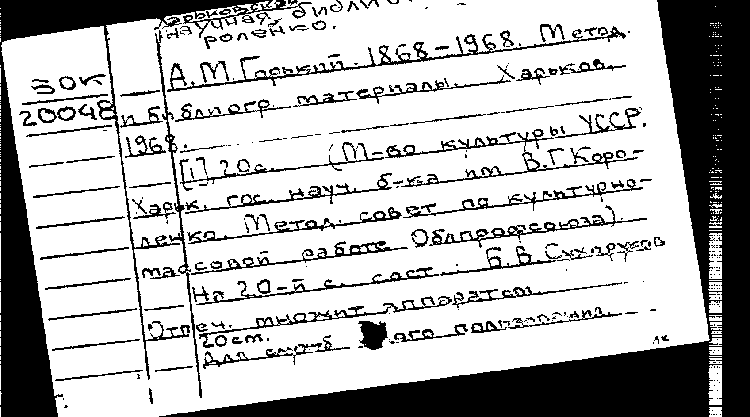 Харьковская
научная библиот
роленко.
А.М. Горький. 1868-1968. Метод.
ЗОК
20048
и библиогр. материалы. Харьков,
1968.
[1], 20 с. (М-во культуры УССР.
Харьк. гос. науч. б-ка им В.Г. Коро-
ленко. Метод. совет по культурно-
массовой работе Облпрофсоюза).
На 20-й с. сост.: Б.В. Сухоруков
Отпеч. множит. аппаратом.
20 см.
Для служб ого пользования.